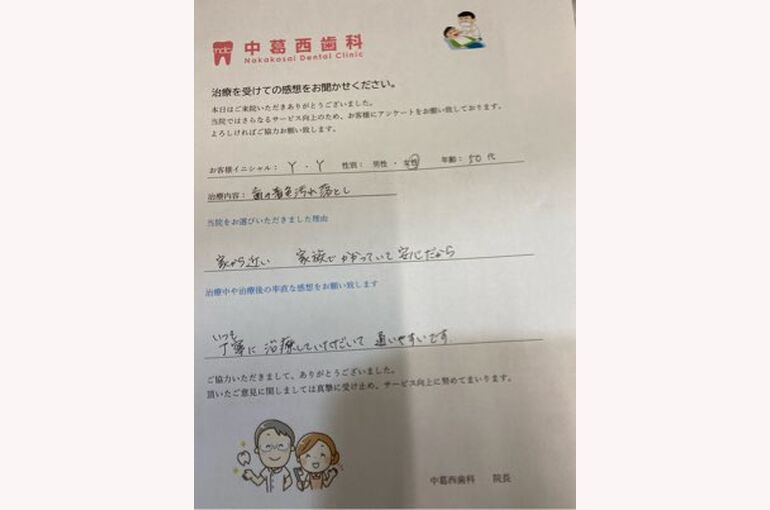 ndc
中葛西歯科
Nakakasai Dental Clinic
治療を受けての感想をお聞かせください。
本日はご来院いただきありがとうございました。
当院ではさらなるサービス向上のため、お客様にアンケートをお願い致しております。
よろしければご協力お願い致します。
お客様イニシャル： Y . Y 性別： 男性 ・ 女性 年齢： 50 代
治療内容： 歯の着色汚れ落とし
当院をお選びいただきました理由
家から近い 家族でかかっていて安心だから
治療中や治療後の率直な感想をお願い致します
いつも
丁寧に治療していただいて 通いやすいです
ご協力いただきまして、ありがとうございました。
頂いたご意見に関しましては真摯に受け止め、サービス向上に努めてまいります。
中葛西歯科 院長